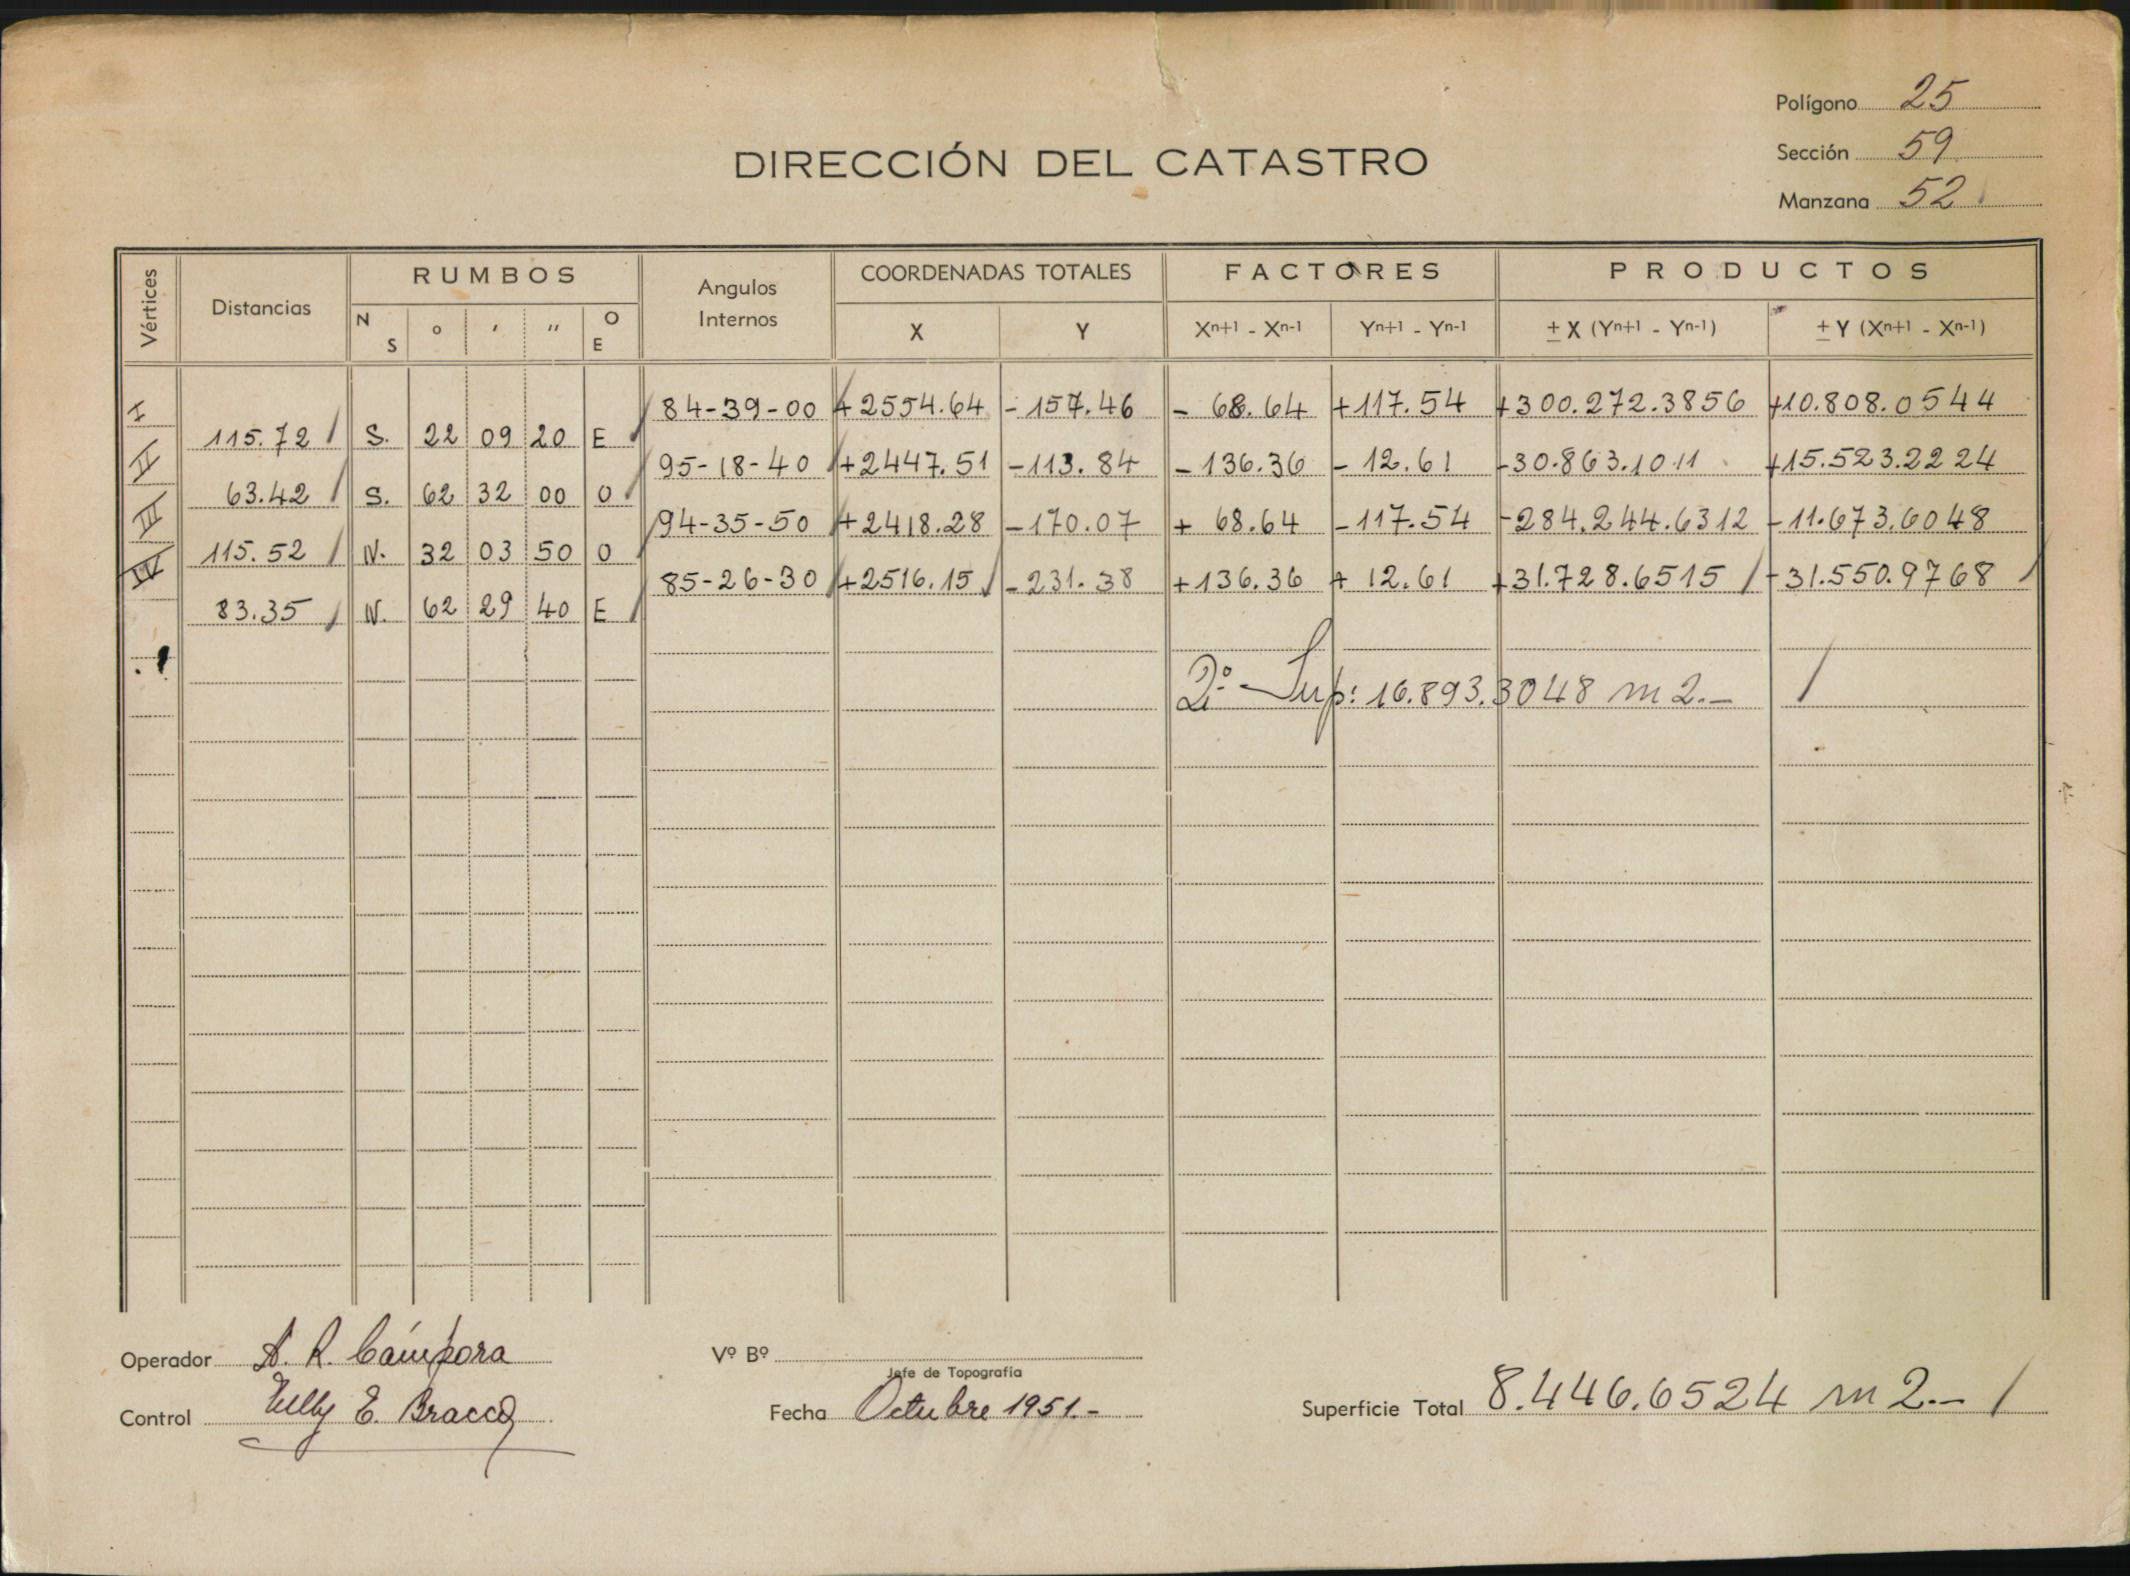 Polígono 25
Sección 59
Manzana 52
DIRECCIÓN DEL CATASTRO
Vértices Distancias RUMBOS Angulos Internos COORDENADAS TOTALES FACTORES PRODUCTOS
N S ° ′ ″ O E X Y Xn+1 - Xn-1 Yn+1 - Yn-1 ± X (Yn+1 - Yn-1) ± Y (Xn+1 - Xn-1)
I 84-39-00 +2554.64 -157.46 - 68.64 +117.54 +300.272.3856 +10.808.0544
115.72 S. 22 09 20 E
II 95-18-40 +2447.51 -113.84 -136.36 - 12.61 -30.863.1011 +15.523.2224
63.42 S. 62 32 00 O
III 94-35-50 +2418.28 -170.07 + 68.64 -117.54 -284.244.6312 -11.673.6048
115.52 N. 32 03 50 O
IV 85-26-30 +2516.15 -231.38 +136.36 + 12.61 +31.728.6515 -31.550.9768
83.35 N. 62 29 40 E
2º- Sup: 16.893.3048 m2.-
Operador A. R. Cámpora Vº Bº
Jefe de Topografía
Control E. Bracco Fecha Octubre 1951.- Superficie Total 8.446.6524 m2.-